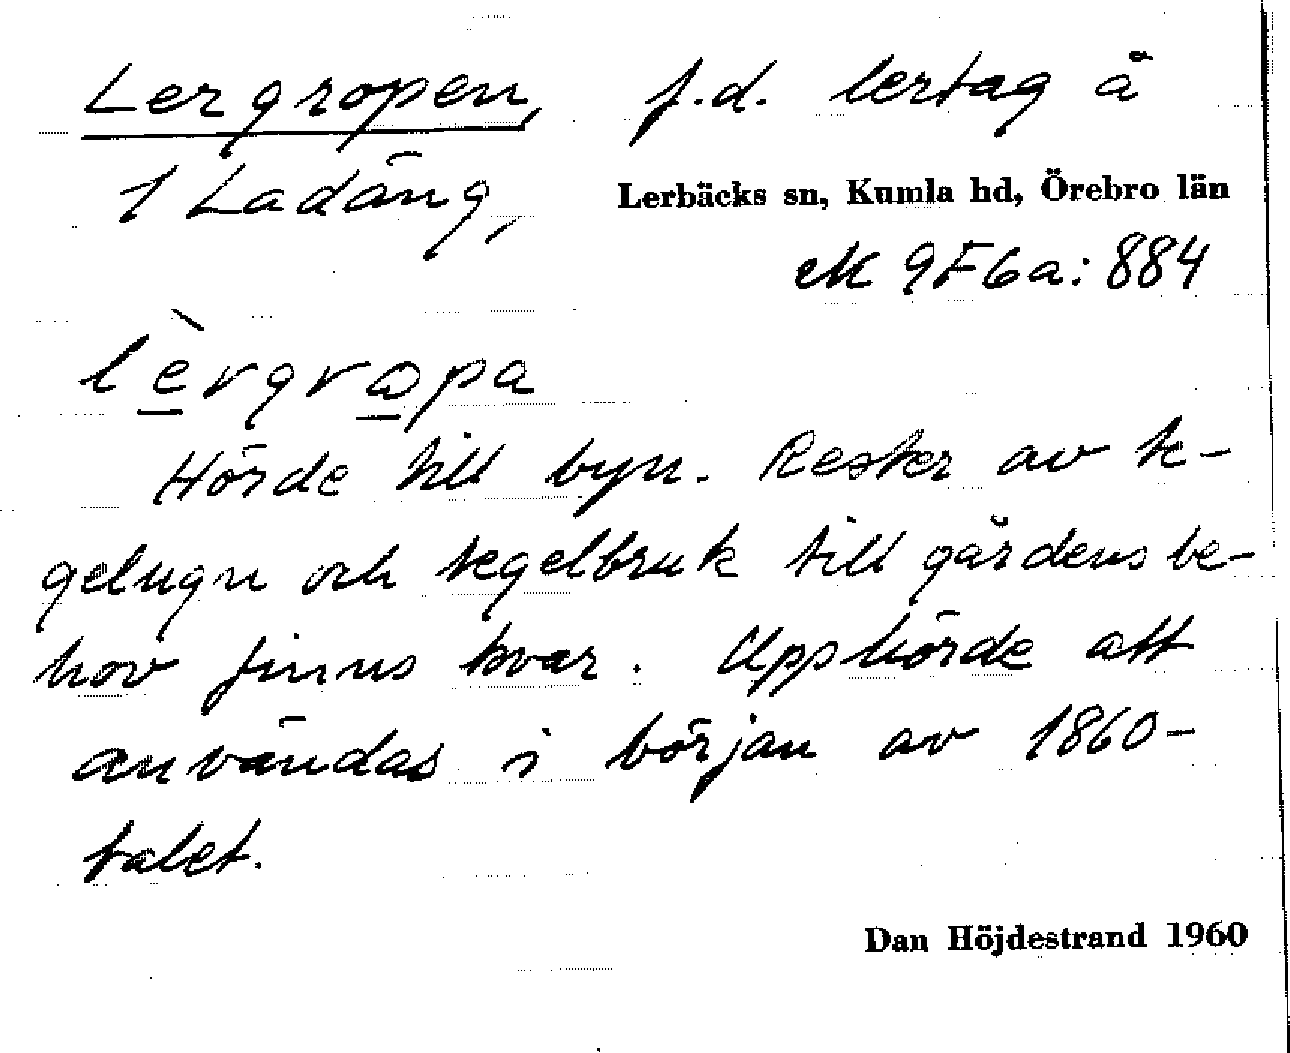 Lergropen, f.d. lertag å
1 Ladäng,
Lerbäcks sn, Kumla hd, Örebro län
ek 9F6a: 884
lèrgrapa
Hörde till byn. Rester av te-
gelugn och tegelbruk till gårdens be-
hov finns kvar. Upphörde att
användas i början av 1860-
talet.
Dan Höjdestrand 1960